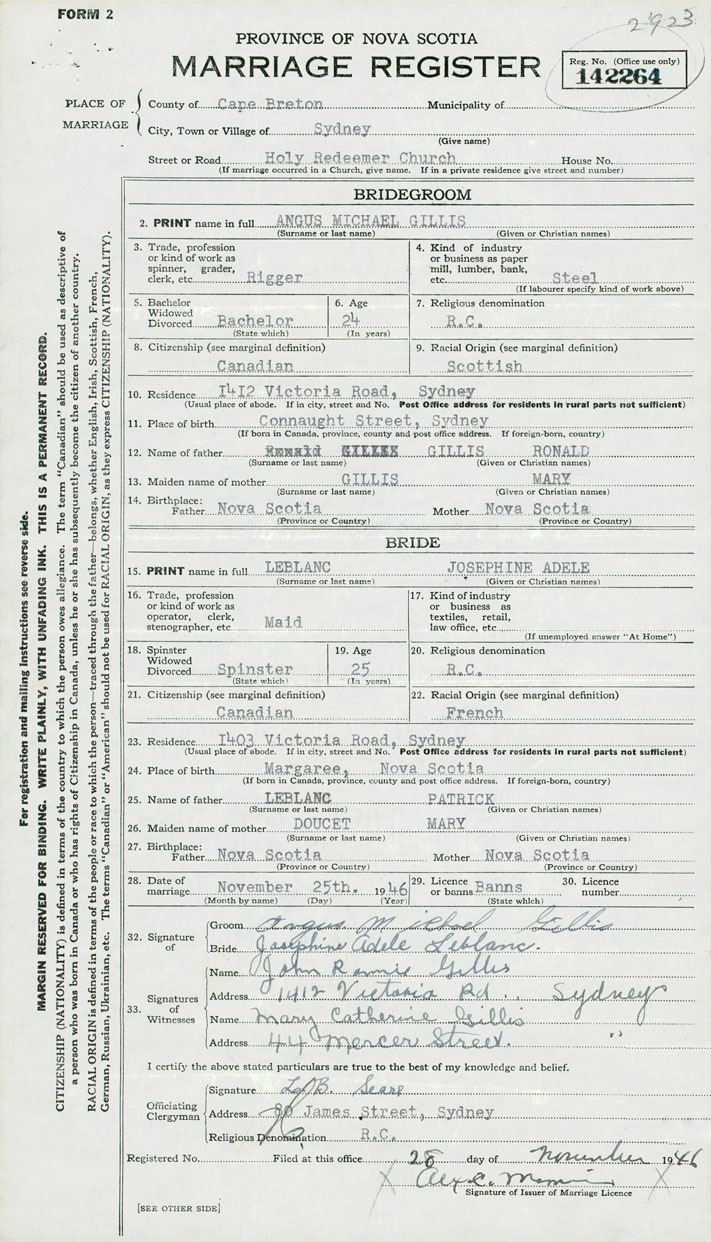 FORM 2
2923
PROVINCE OF NOVA SCOTIA
MARRIAGE REGISTER
Reg. No. (Office use only)
142264
PLACE OF MARRIAGE
County of Cape Breton Municipality of
City, Town or Village of Sydney
(Give name)
Street or Road Holy Redeemer Church House No.
(If marriage occurred in a Church, give name. If in a private residence give street and number)
BRIDEGROOM
2. PRINT name in full ANGUS MICHAEL GILLIS
(Surname or last name) (Given or Christian names)
3. Trade, profession or kind of work as spinner, grader, clerk, etc. Rigger
4. Kind of industry or business as paper mill, lumber, bank, etc. Steel
(If labourer specify kind of work above)
5. Bachelor Widowed Divorced Bachelor
(State which)
6. Age 24
(In years)
7. Religious denomination
R.C.
8. Citizenship (see marginal definition)
Canadian
9. Racial Origin (see marginal definition)
Scottish
10. Residence 1412 Victoria Road, Sydney
(Usual place of abode. If in city, street and No. Post Office address for residents in rural parts not sufficient)
11. Place of birth Connaught Street, Sydney
(If born in Canada, province, county and post office address. If foreign-born, country)
12. Name of father Ronald GILLIS GILLIS RONALD
(Surname or last name) (Given or Christian names)
13. Maiden name of mother GILLIS MARY
(Surname or last name) (Given or Christian names)
14. Birthplace:
Father Nova Scotia Mother Nova Scotia
(Province or Country) (Province or Country)
BRIDE
15. PRINT name in full LEBLANC JOSEPHINE ADELE
(Surname or last name) (Given or Christian names)
16. Trade, profession or kind of work as operator, clerk, stenographer, etc. Maid
17. Kind of industry or business as textiles, retail, law office, etc.
(If unemployed answer "At Home")
18. Spinster Widowed Divorced Spinster
(State which)
19. Age 25
(In years)
20. Religious denomination
R.C.
21. Citizenship (see marginal definition)
Canadian
22. Racial Origin (see marginal definition)
French
23. Residence 1403 Victoria Road, Sydney
(Usual place of abode. If in city, street and No. Post Office address for residents in rural parts not sufficient)
24. Place of birth Margaree, Nova Scotia
(If born in Canada, province, county and post office address. If foreign-born, country)
25. Name of father LEBLANC PATRICK
(Surname or last name) (Given or Christian names)
26. Maiden name of mother DOUCET MARY
(Surname or last name) (Given or Christian names)
27. Birthplace:
Father Nova Scotia Mother Nova Scotia
(Province or Country) (Province or Country)
28. Date of marriage November 25th. 1946
(Month by name) (Day) (Year)
29. Licence or banns Banns
(State which)
30. Licence number
32. Signature of
Groom Angus Michael Gillis
Bride Josephine Adele Leblanc.
33. Signatures of Witnesses
Name John Rannie Gillis
Address 1412 Victoria Rd.. Sydney
Name Mary Catherine Gillis
Address 44 Mercer Street. "
I certify the above stated particulars are true to the best of my knowledge and belief.
Officiating Clergyman
Signature B. Seare
Address 80 James Street, Sydney
Religious Denomination R.C.
Registered No. Filed at this office 28 day of November 1946
Alex C.
Signature of Issuer of Marriage Licence
[SEE OTHER SIDE]
For registration and mailing instructions see reverse side.
MARGIN RESERVED FOR BINDING. WRITE PLAINLY, WITH UNFADING INK. THIS IS A PERMANENT RECORD.
CITIZENSHIP (NATIONALITY) is defined in terms of the country to which the person owes allegiance. The term "Canadian" should be used as descriptive of
a person who was born in Canada or who has rights of Citizenship in Canada, unless he or she has subsequently become the citizen of another country.
RACIAL ORIGIN is defined in terms of the people or race to which the person—traced through the father—belongs, whether English, Irish, Scottish, French,
German, Russian, Ukrainian, etc. The terms "Canadian" or "American" should not be used for RACIAL ORIGIN, as they express CITIZENSHIP (NATIONALITY).